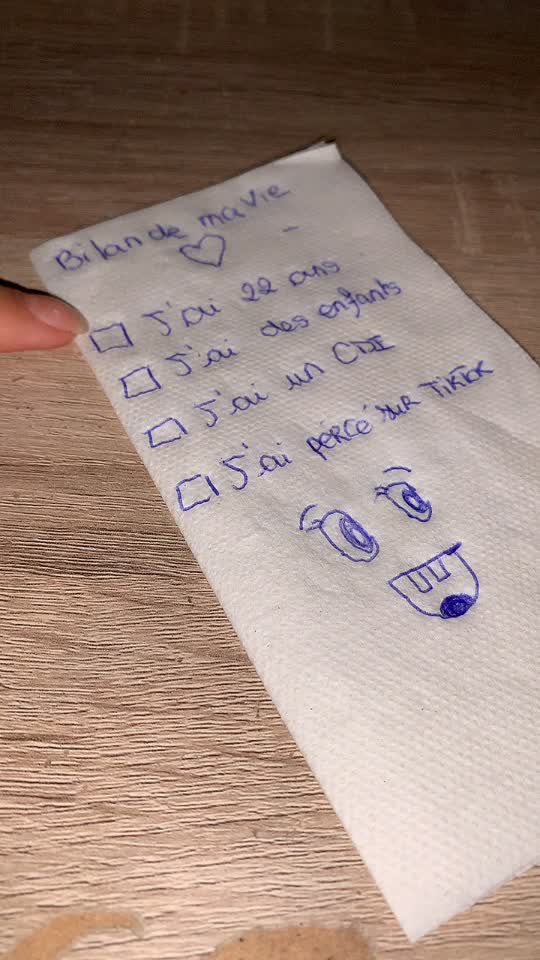 Bilan de ma vie
J'ai 22 ans
J'ai des enfants
J'ai un CDI
J'ai percé sur TikTok